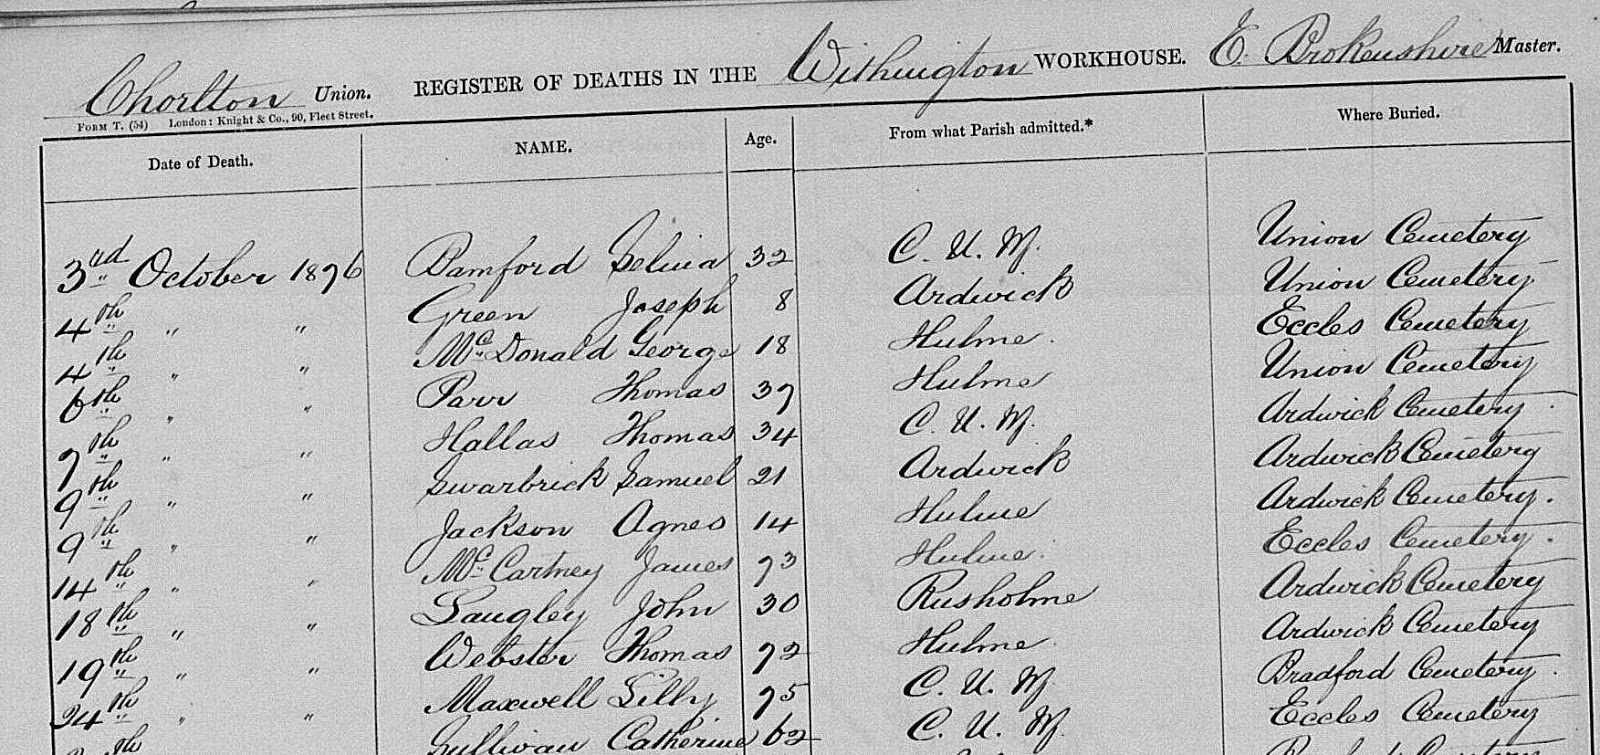 Chorlton Union. REGISTER OF DEATHS IN THE Withington WORKHOUSE. E. Brokenshire Master.
FORM T. (54) London: Knight & Co., 90, Fleet Street.
Date of Death. NAME. Age. From what Parish admitted.* Where Buried.
3rd October 1876 Bamford Selina 32 C. U. W. Union Cemetery
4th " " Green Joseph 8 Ardwick Union Cemetery
4th " " McDonald George 18 Hulme. Eccles Cemetery
6th " " Parr Thomas 37 Hulme Union Cemetery
7th " " Hallas Thomas 34 C. U. W. Ardwick Cemetery.
9th " " Swarbrick Samuel 21 Ardwick Ardwick Cemetery
9th " " Jackson Agnes 14 Hulme Ardwick Cemetery.
14th " " McCartney James 73 Hulme. Eccles Cemetery.
18th " " Langley John 30 Rusholme Ardwick Cemetery
19th " " Webster Thomas 72 Hulme. Ardwick Cemetery
24th " " Maxwell Lilly 75 C. U. W. Bradford Cemetery.
Sullivan Catherine 62 C. U. W. Eccles Cemetery